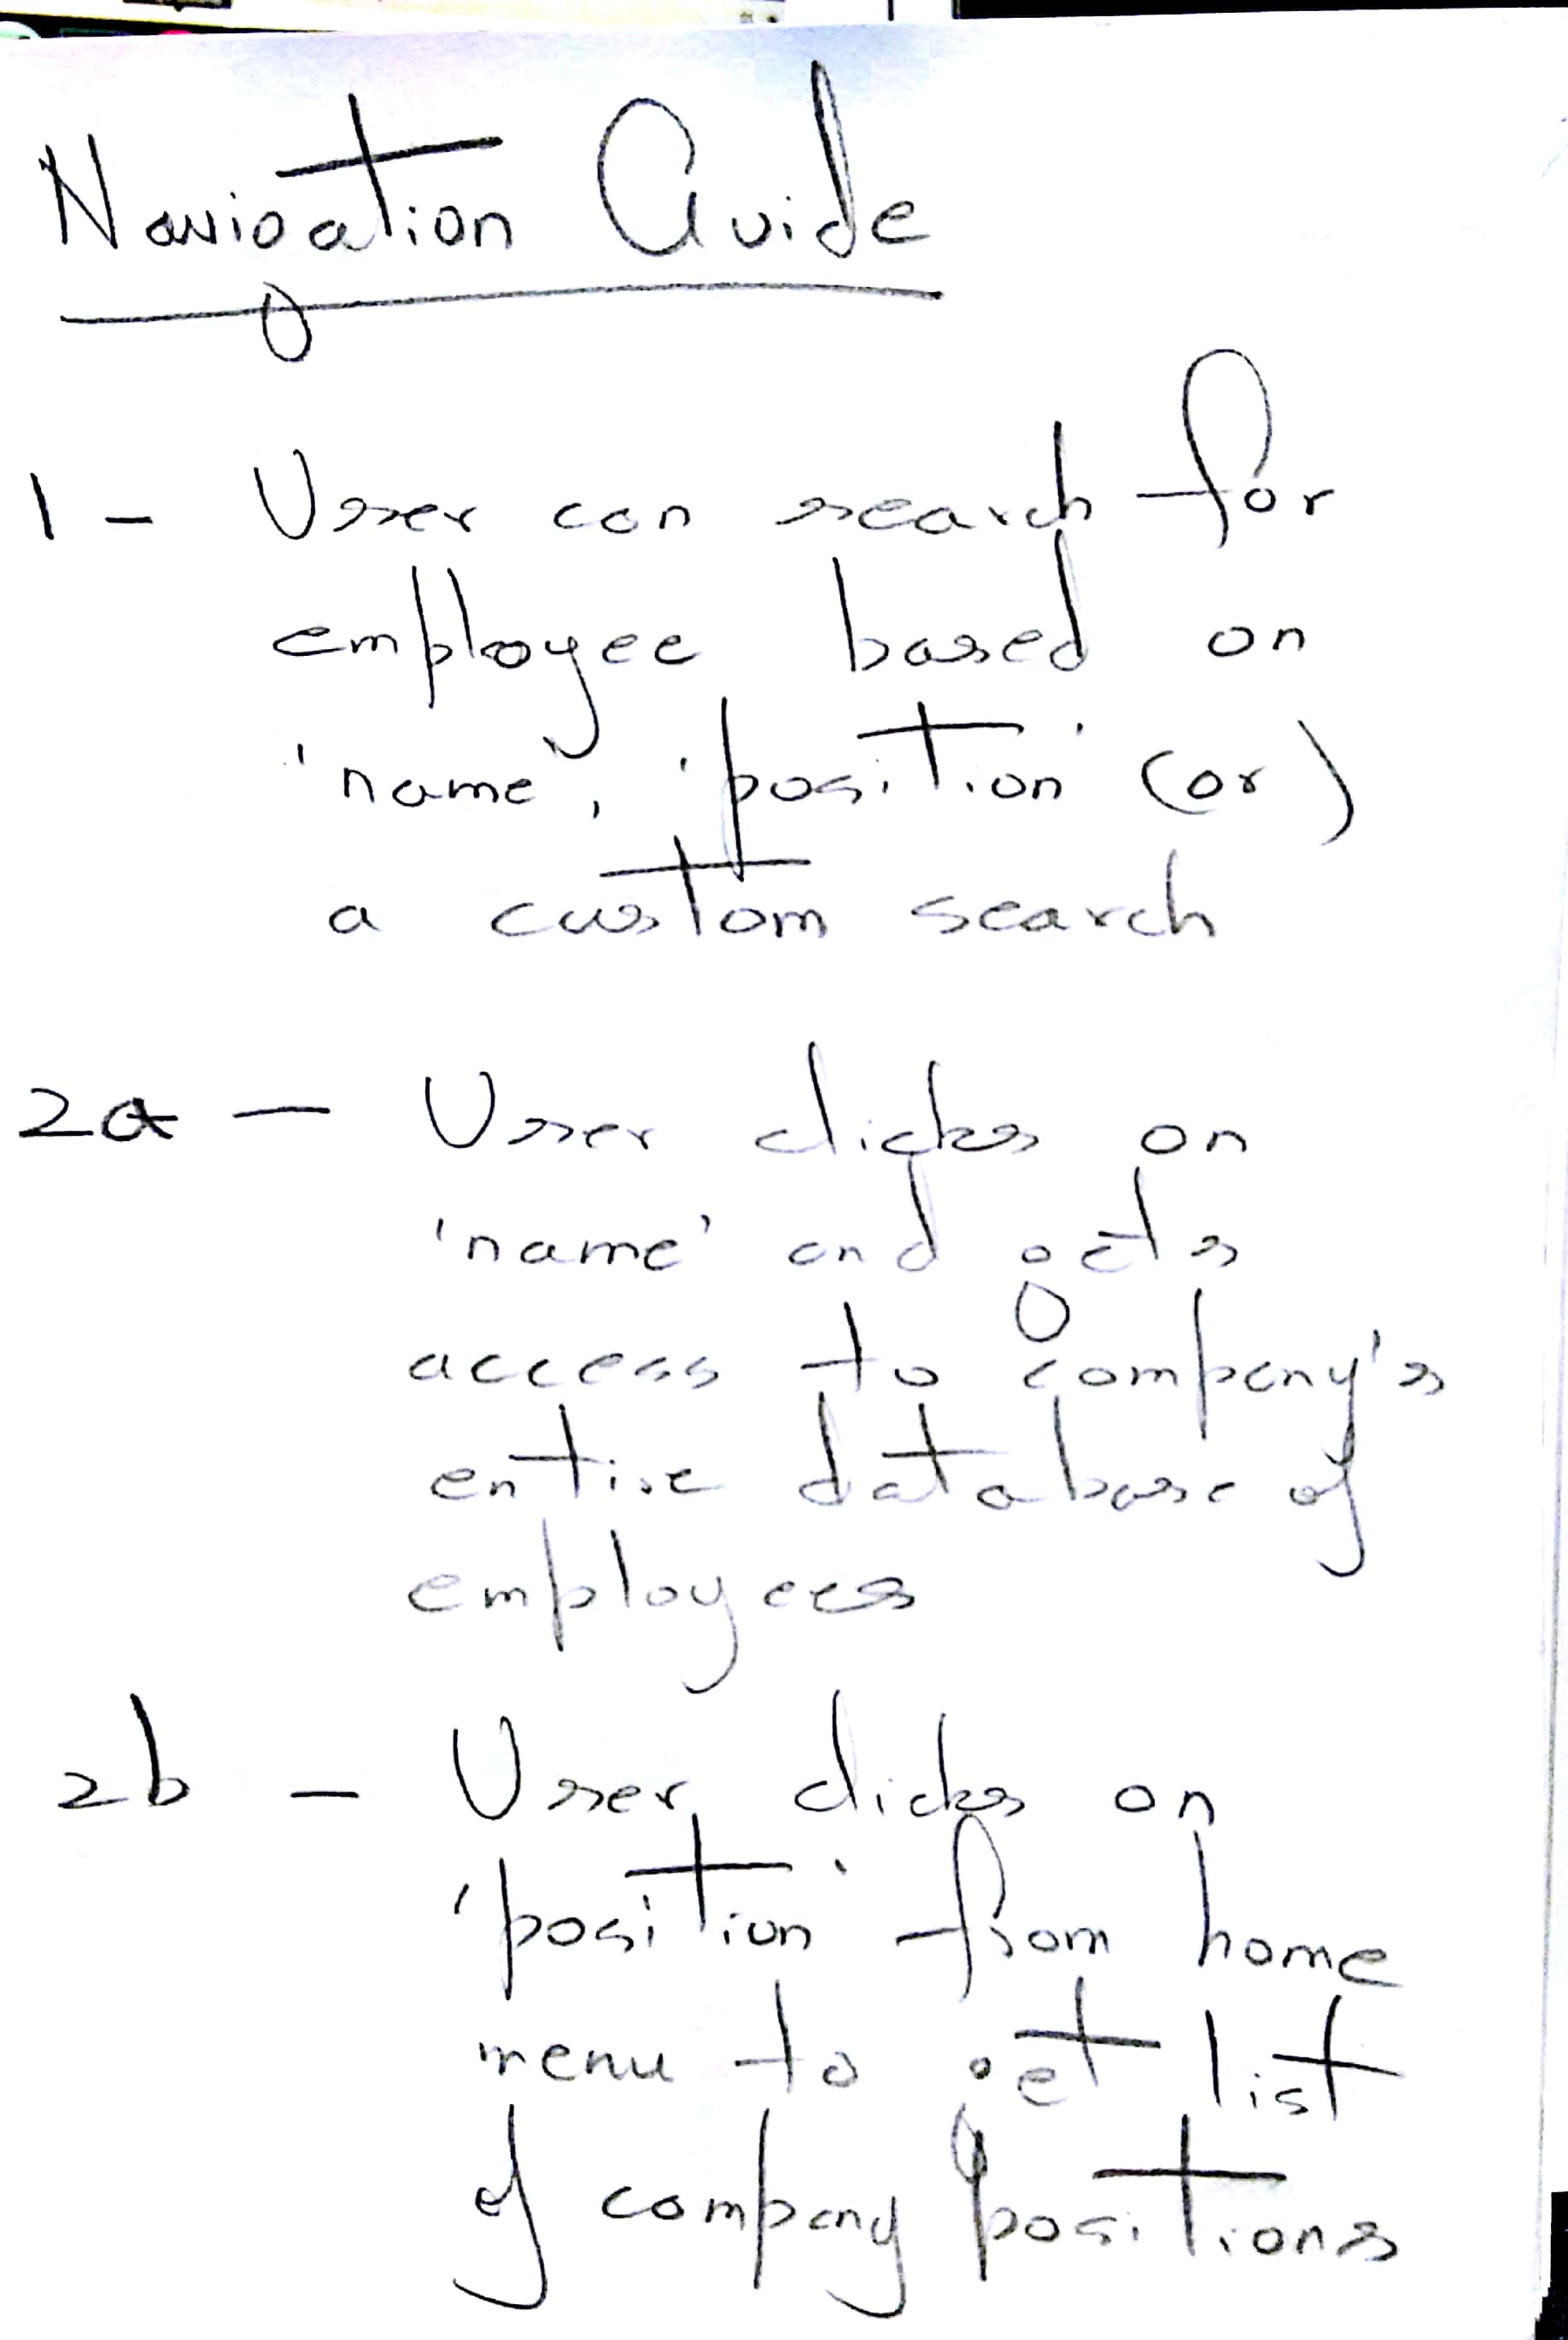 Navigation Guide
1 - User can search for
employee based on
'name', 'position' (or)
a custom search
2a - User clicks on
'name' and gets
access to company's
entire database of
employees
2b - User clicks on
'position' from home
menu to get list
of company positions